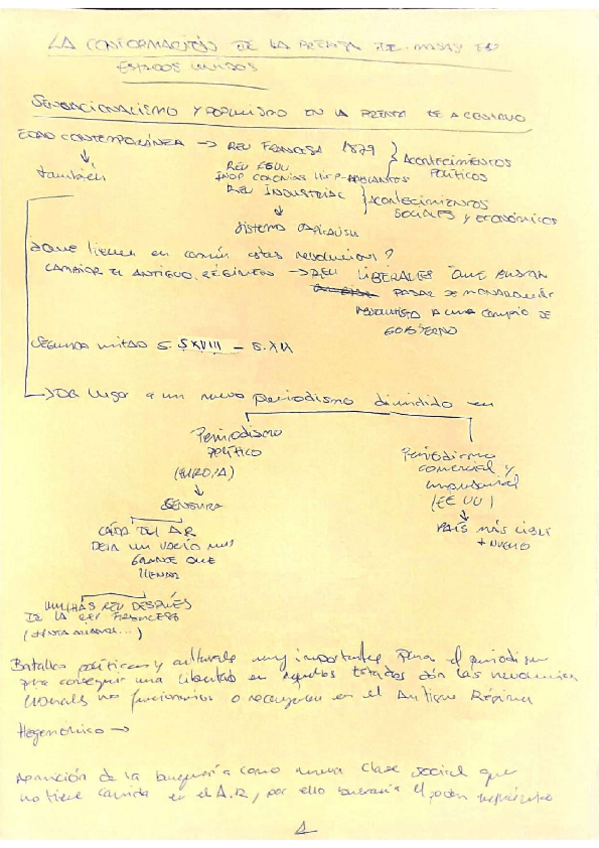 LA CONFORMACIÓN DE LA PRENSA DE MASAS EN
ESTADOS UNIDOS
SENSACIONALISMO Y POPULISMO EN LA PRENSA DE A CENTAVO
EDAD CONTEMPORÁNEA → REV FRANCESA 1879 } Acontecimientos
también REV EEUU políticos
INDP COLONIAS HISP-
REV INDUSTRIAL } Acontecimientos
sociales y económicos
sistema capitalista
¿Que tienen en común estas revoluciones?
CAMBIAR EL ANTIGUO RÉGIMEN → REV LIBERALES QUE BUSCAN
PASAR DE MONARQUÍA
A UN CAMBIO DE
GOBIERNO
SEGUNDA MITAD S. SXVIII - S. XIX
→ DA lugar a un nuevo periodismo dividido en
Periodismo
POLÍTICO
(EUROPA)
CENSURA
CAÍDA DEL AR
DEJA UN VACÍO MUY
GRANDE QUE
LLENAR
MUCHAS REV DESPUÉS
DE LA REV FRANCESA
Periodismo
comercial y
empresarial
(EEUU)
PAÍS MÁS LIBRE
+ NUEVO
Batallas políticas y culturales muy importantes para el periodismo
para conseguir una libertad en aquellos Estados dón las revoluciones
liberales no funcionaron o recayeron en el Antiguo Régimen
Hegemónico →
Aparición de la burguesía como nueva clase social que
no tiene cabida en el A.R, por ello buscaría el poder
1